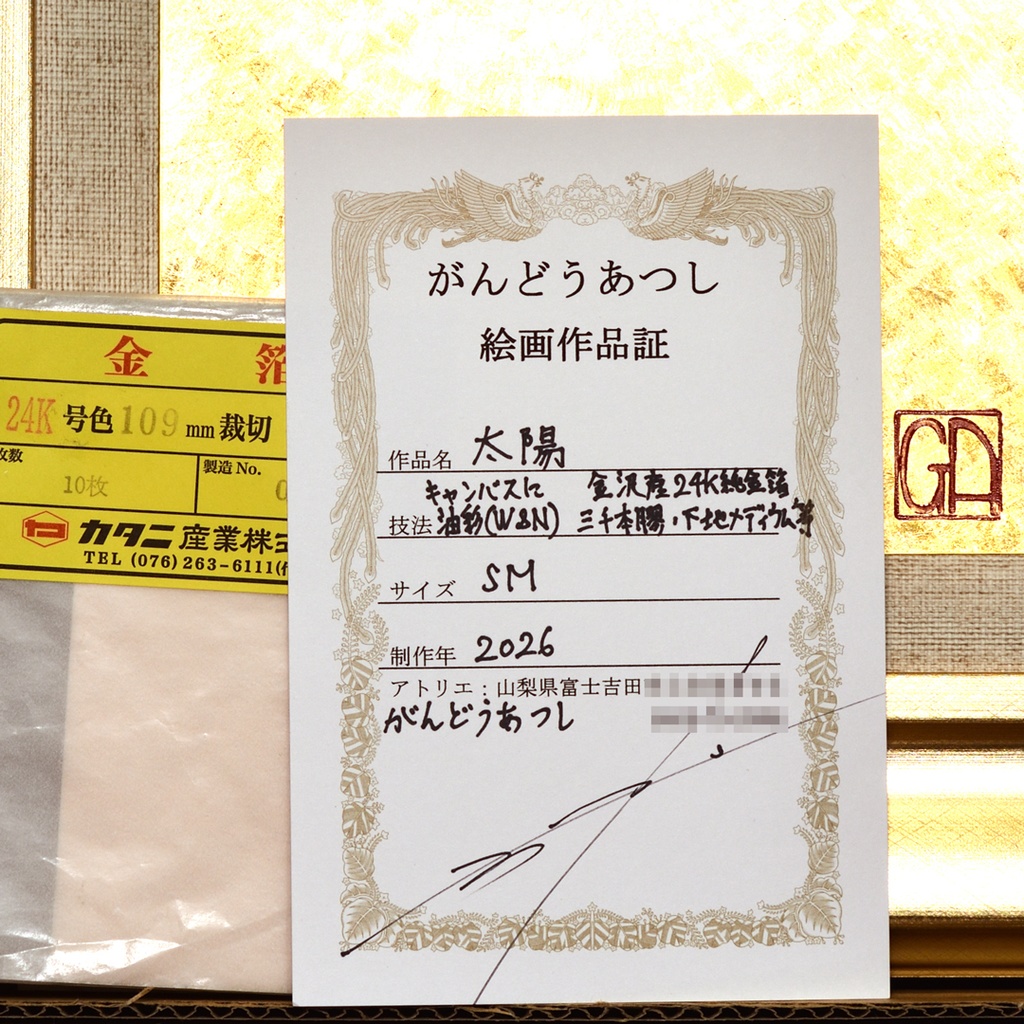 がんどうあつし
絵画作品証
作品名 太陽
キャンバスに 金沢産24K純金箔
技法 油彩(W&N) 三千本膠・下地メディウム等
サイズ SM
制作年 2026
アトリエ：山梨県富士吉田
がんどうあつし
金 箔
24K 号色 109 mm 裁切
枚数 製造 No.
10枚 0
カタニ産業株式
TEL (076) 263-6111(
GA